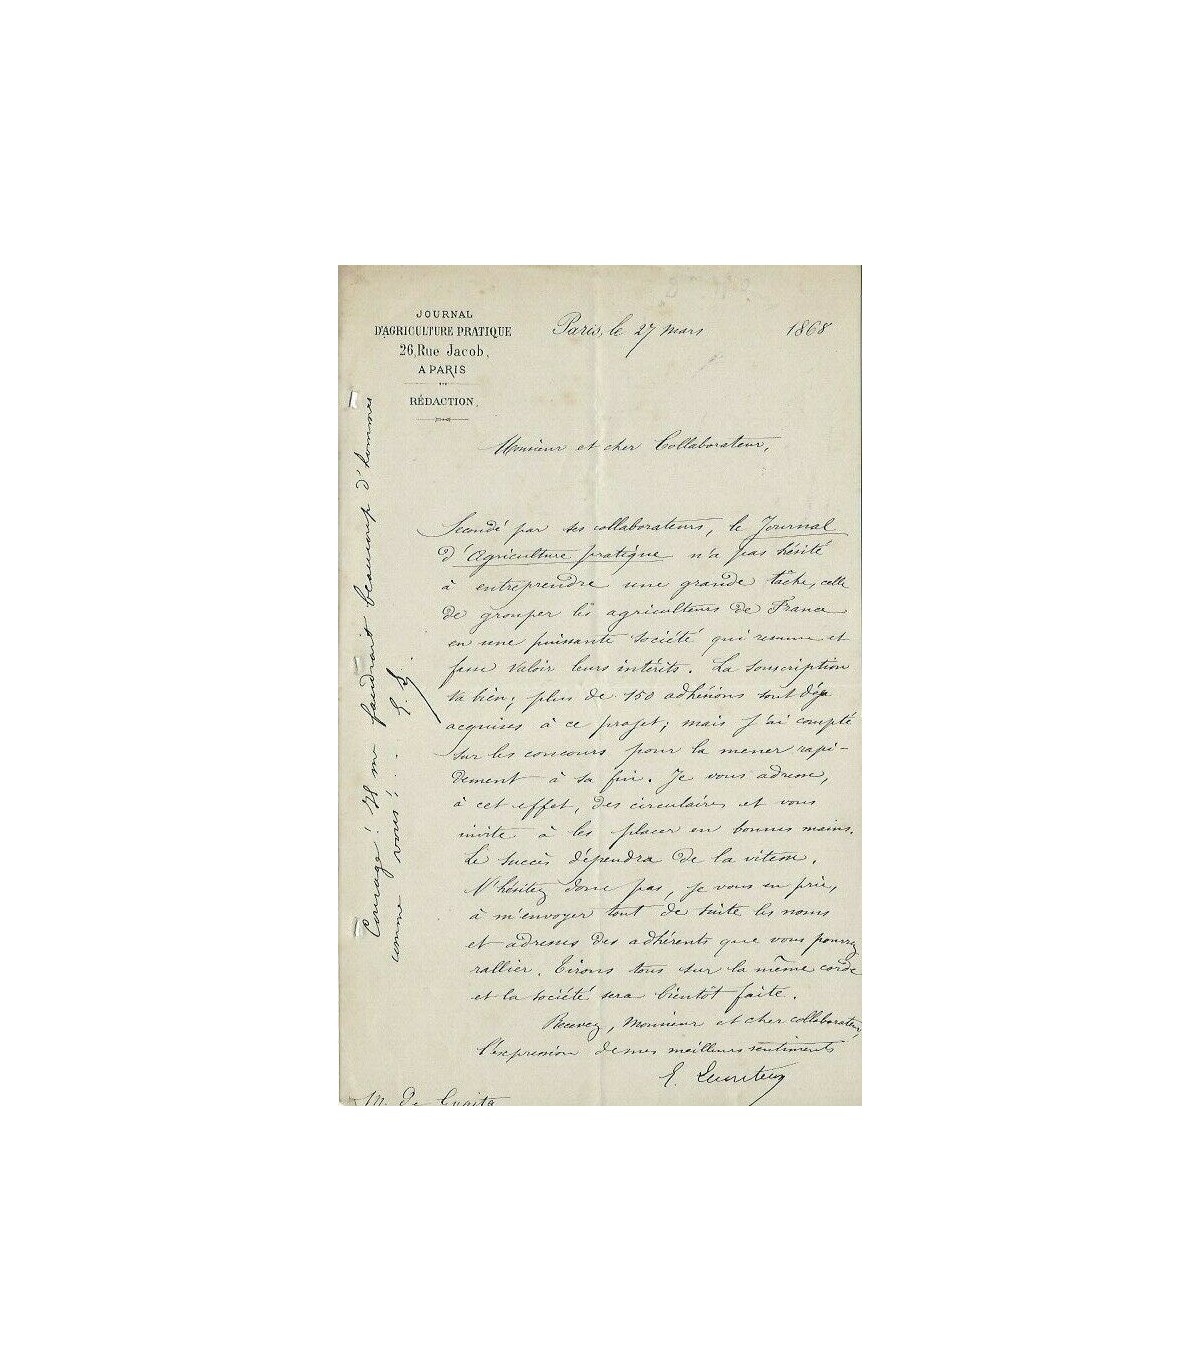 JOURNAL
D'AGRICULTURE PRATIQUE
26, Rue Jacob,
A PARIS
RÉDACTION.
Paris, le 27 mars 1868
Monsieur et cher Collaborateur,
Secondé par ses collaborateurs, le Journal
d'Agriculture pratique n'a pas hésité
à entreprendre une grande tâche, celle
de grouper les agriculteurs de France
en une puissante société qui resume et
fasse valoir leurs intérêts. La souscription
va bien; plus de 150 adhésions sont déja
acquises à ce projet; mais j'ai compté
sur les concours pour la mener rapi-
dement à sa fin. Je vous adresse,
à cet effet, des circulaires et vous
invite à les placer en bonnes mains.
Le succès dépendra de la vitesse.
N'hésitez donc pas, je vous en prie,
à m'envoyer tout de suite les noms
et adresses des adhérents que vous pourrez
rallier. Tirons tous sur la même corde
et la société sera bientôt faite.
Recevez, Monsieur et cher collaborateur,
l'expression de mes meilleurs sentiments
E. Lecouteux
M. de Guaita
Courage! Il m faudrait beaucoup d'hommes
comme vous!
E. L.